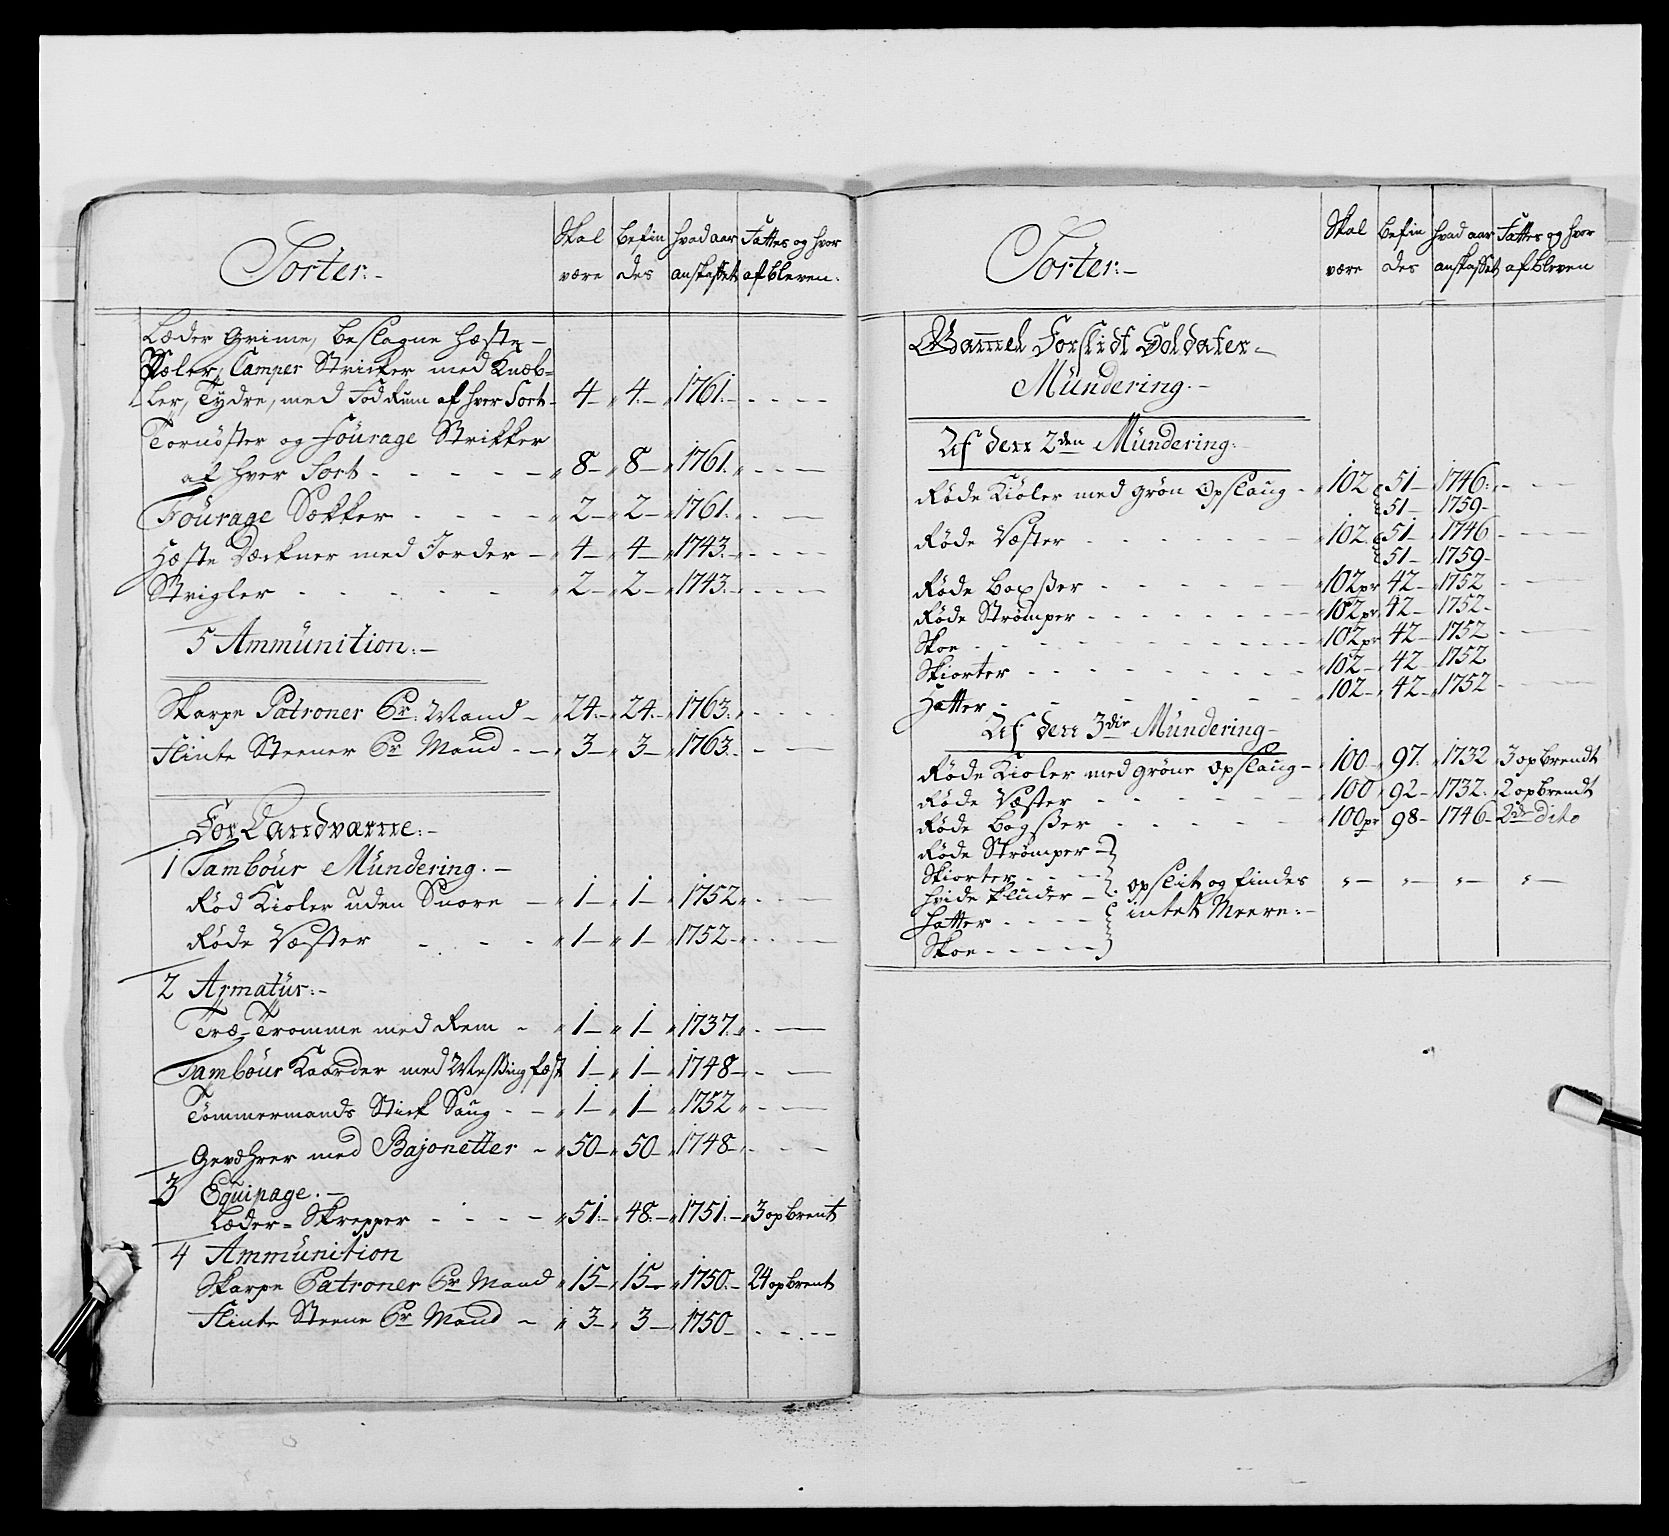 Sorter:-
Skal være
befindes
hvad aar anskaffet
Fattes og hvor afbleven.
Læder Grime, beslagne Hæste-
Pæler, Camper Stricker med Knæb-
ler, Tydre, med Fod Rum af hver Sort - 4 - 4 - 1761 -
Tornøster og Fourage Strikker
af hver Sort - 8 - 8 - 1761 -
Fourage Sækker - 2 - 2 - 1761 -
Hæste Dækner med Jorder - 4 - 4 - 1743 -
Strigler - 2 - 2 - 1743 -
5 Ammünition:-
Skarpe Patroner Pr: Mand - 24 - 24 - 1763 -
Flinte Steener Pr Mand - 3 - 3 - 1763 -
For Landværne:-
1 Tambour Mündering.-
Rød Kioler uden Snore - 1 - 1 - 1752 -
Røde Væster - 1 - 1 - 1752 -
2 Armatür:-
Træ-Tromme med Rem - 1 - 1 - 1737 -
Tambour Kaarder med Messing fæst 1 - 1 - 1748 -
Tømmermands Stick Saug - 1 - 1 - 1752 -
Gevæhrer med Bajonetter - 50 - 50 - 1748 -
3 Equipage.-
Læder-Skrepper - 51 - 48 - 1751 - 3 opbrent
4 Ammünition
Skarpe Patroner Pr Mand 15 - 15 - 1750 - 24 opbrent
Flinte Steene Pr Mand - 3 - 3 - 1750 -
Sorter:-
Skal være
befindes
hvad aar anskaffet
Fattes og hvor afbleven
Gammel Forslidt Soldater-
Mündering.-
Af den 2den Mündering:-
Røde Kioler med grøn Opslaug - 102 51 - 1746 -
51 - 1759 -
Røde Væster - 102 51 - 1746 -
51 - 1759 -
Røde Boxßer - 102 pr 42 - 1752 -
Røde Strømper - 102 pr 42 - 1752 -
Skoe - 102 pr 42 - 1752 -
Skiorter - 102 - 42 - 1752
Hatter - 102 - 42 - 1752 -
Af den 3die Mündering-
Røde Kioler med grøne Opslaug - 100 - 97 - 1732 3 opbrendt
Røde Væster - 100 92 - 1732 2 opbrendt
Røde Bogßer - 100 pr 98 - 1746 - 2 dito
Røde Strømper -
Skiorter -
Hvide Kluder - opslit og findes
Hatter - intet Meere:-
Skoe -